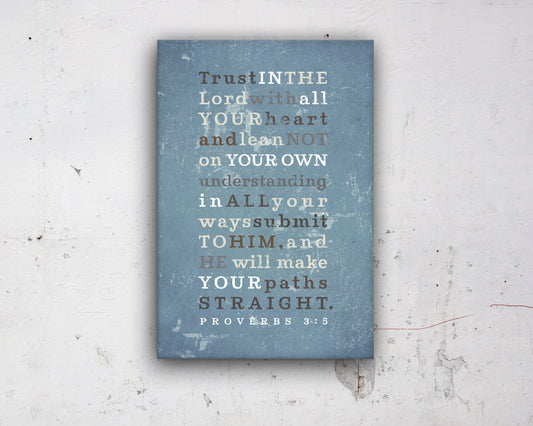 Trust IN THE
Lord with all
YOUR heart
and lean NOT
on YOUR OWN
understanding
in ALL your
ways submit
TO HIM, and
HE will make
YOUR paths
STRAIGHT.
PROVERBS 3:5